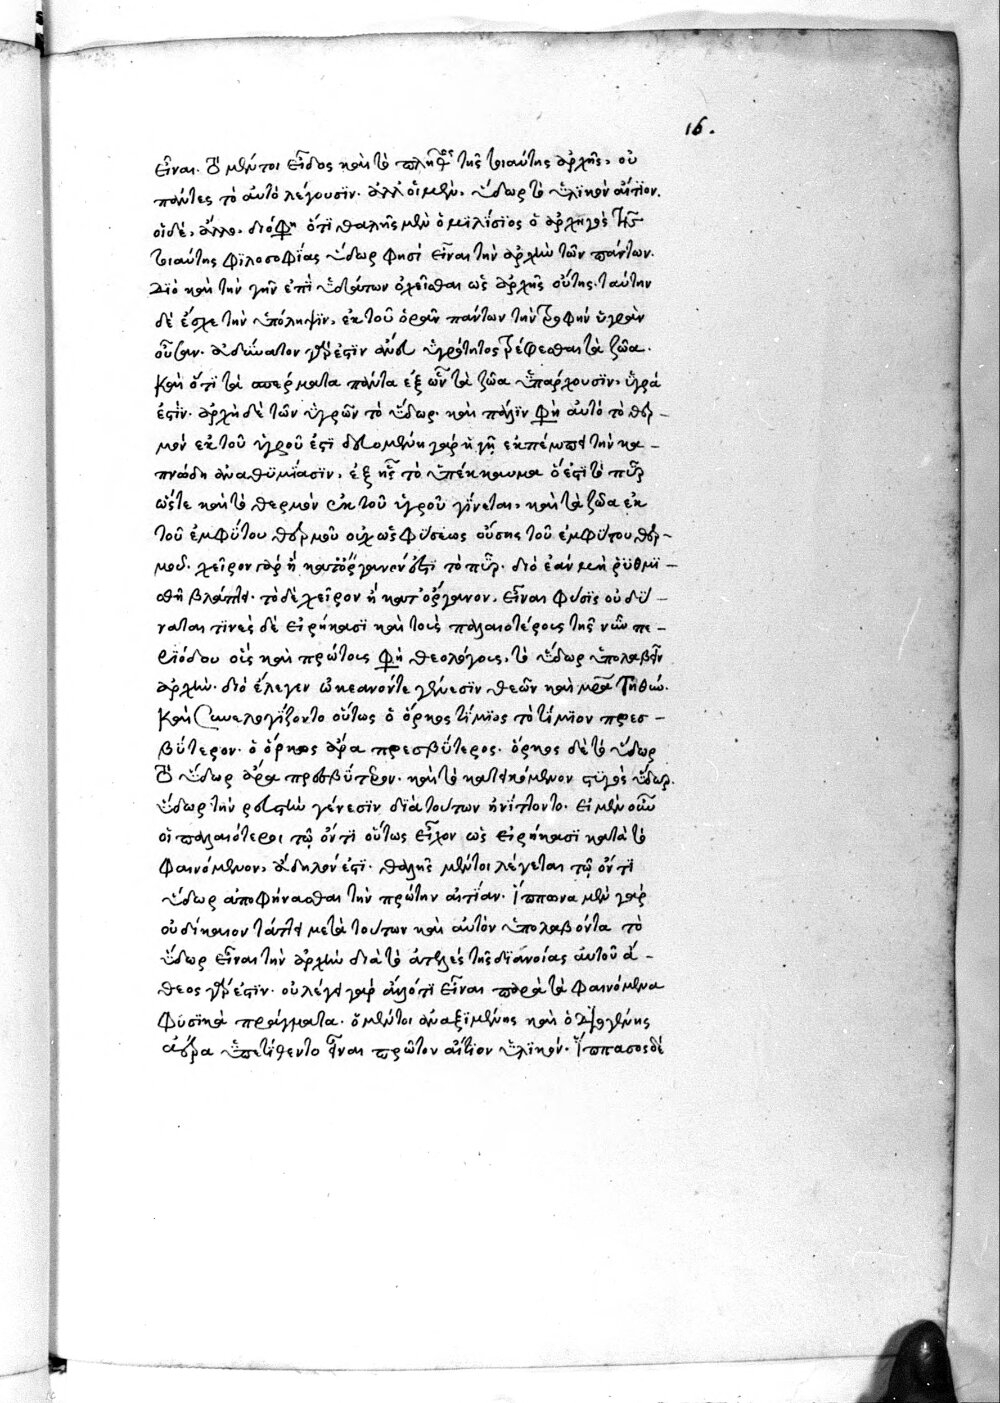 16.
εἶναι. τὸ μέντοι εἶδος καὶ τὸ πλῆθος τῆς τοιαύτης ἀρχῆς, οὐ
πάντες τὸ αὐτὸ λέγουσϊν. ἀλλ' οἱ μὲν, ὕδωρ τὸ ὑλϊκὸν αἴτϊον.
οἱ δὲ, ἄλλο. διό φη ὅτϊ θαλῆς μὲν ὁ μϊλίσϊος ὁ ἀρχηγὸς τῆς
τοιαύτης φϊλοσοφίας ὕδωρ φησὶ εἶναι τὴν ἀρχὴν τῶν πάντων.
Διὸ καὶ τὴν γῆν ἐπὶ ὑδάτων ὀχεῖσθαι ὡς ἀρχῆς οὔσης. ταύτην
δὲ ἔσχε τὴν ὑπόληψϊν, ἐκ τοῦ ὁρᾶν πάντων τὴν τροφὴν ὑγρὰν
οὖσαν. ἀδύνατον γάρ ἐστϊν ἄνευ ὑγρότητος τρέφεσθαι τὰ ζῶα.
Καὶ ὅτϊ τὰ σπέρματα πάντα ἐξ ὧν τὰ ζῶα ὑπάρχουσϊν, ὑγρά
ἐστϊν. ἀρχὴ δὲ τῶν ὑγρῶν τὸ ὕδωρ. καὶ πάλϊν φη αὐτὸ τὸ θερ-
μὸν ἐκ τοῦ ὑγροῦ ἐστϊ δυομένη γὰρ ἡ γῆ ἐκπέμπει τὴν κα-
πνώδη ἀναθυμίασϊν, ἐξ ἧς τὸ ὑπέκκαυμα ὅ ἐστϊ τὸ πῦρ
ὥστε καὶ τὸ θερμὸν ἐκ τοῦ ὑγροῦ γίνεται, καὶ τὰ ζῶα ἐκ
τοῦ ἐμφύτου θερμοῦ οὐχ ὡς φύσεως οὔσης τοῦ ἐμφύτου θερ-
μοῦ. χεῖρον γὰρ ἢ κατ' ὄργανόν ἐστϊ τὸ πῦρ. διὸ ἐὰν μὴ ῥϋθμϊ-
σθῆ βλάπτει. τὸ δὲ χεῖρον ἢ κατ' ὄργανον, εἶναι φύσϊς οὐ δύ-
ναται τϊνὲς δὲ εἰρήκασϊ καὶ τοὺς παλαιοτέρους τῆς νῦν πε-
ριόδου οἷς καὶ πρώτοις φη θεολόγοις, τὸ ὕδωρ ὑπολαβεῖν
ἀρχὴν. διὸ ἔλεγεν ὠκεανόν τε γένεσϊν θεῶν καὶ μητέρα τηθώ.
Καὶ συνελογίζοντο οὕτως ὁ ὅρκος τίμϊος τὸ τίμϊον πρεσ-
βύτερον. ὁ ὅρκος ἄρα πρεσβύτερος. ὅρκος δὲ τὸ ὕδωρ
Τὸ ὕδωρ ἄρα πρεσβύτερον. καὶ τὸ κατεχόμενον στϋγὸς ὕδωρ.
ὕδωρ τὴν ρευστὴν γένεσϊν δϊὰ τούτων ἠνίττοντο. εἰ μὲν οὖν
οἱ παλαιότεροι τῷ ὄντϊ οὕτως εἶχον ὡς εἰρήκασϊ κατὰ τὸ
φαινόμενον, ἄδηλόν ἐστϊ. θαλῆς μέντοι λέγεται τῷ ὄντϊ
ὕδωρ ἀποφήνασθαι τὴν πρώτην αἰτίαν. ἵππωνα μὲν γὰρ
οὐ δίκαιον τάττει μετὰ τούτων καὶ αὐτὸν ὑπολαβόντα τὸ
ὕδωρ εἶναι τὴν ἀρχὴν διὰ τὸ ἀτελὲς τῆς δϊανοίας αὐτοῦ ἄ-
θεος γάρ ἐστϊν. οὐ λέγει γὰρ αἴτϊόν τϊ εἶναι παρὰ τὰ φαινόμενα
φϋσϊκὰ πράγματα. ὁ μέντοι ἀναξϊμένης καὶ ὁ Διογένης
ἀέρα ὑπετίθεντο εἶναι πρῶτον αἴτϊον ὑλϊκὸν. ἵππασος δὲ